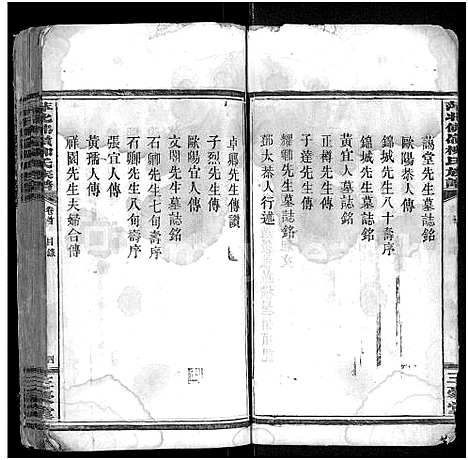 謁堂先生墓誌銘
歐陽恭人傳
錦城先生八十壽序
錦城先生墓誌銘
黃宜人墓誌銘
正樽先生墓誌銘
子達先生墓誌銘
鄧太恭人行述
卓卿先生傳讚
子烈先生傳
歐陽宜人傳
文閣先生墓誌銘
石卿先生七旬壽序
石卿先生八旬壽序
張宜人傳
黃孺人傳
祥園先生夫婦合傳
卷首 目錄
四